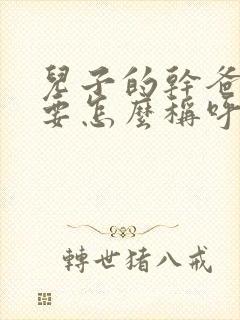 兒子的幹爸
要怎麼稱呼
轉世猪八戒